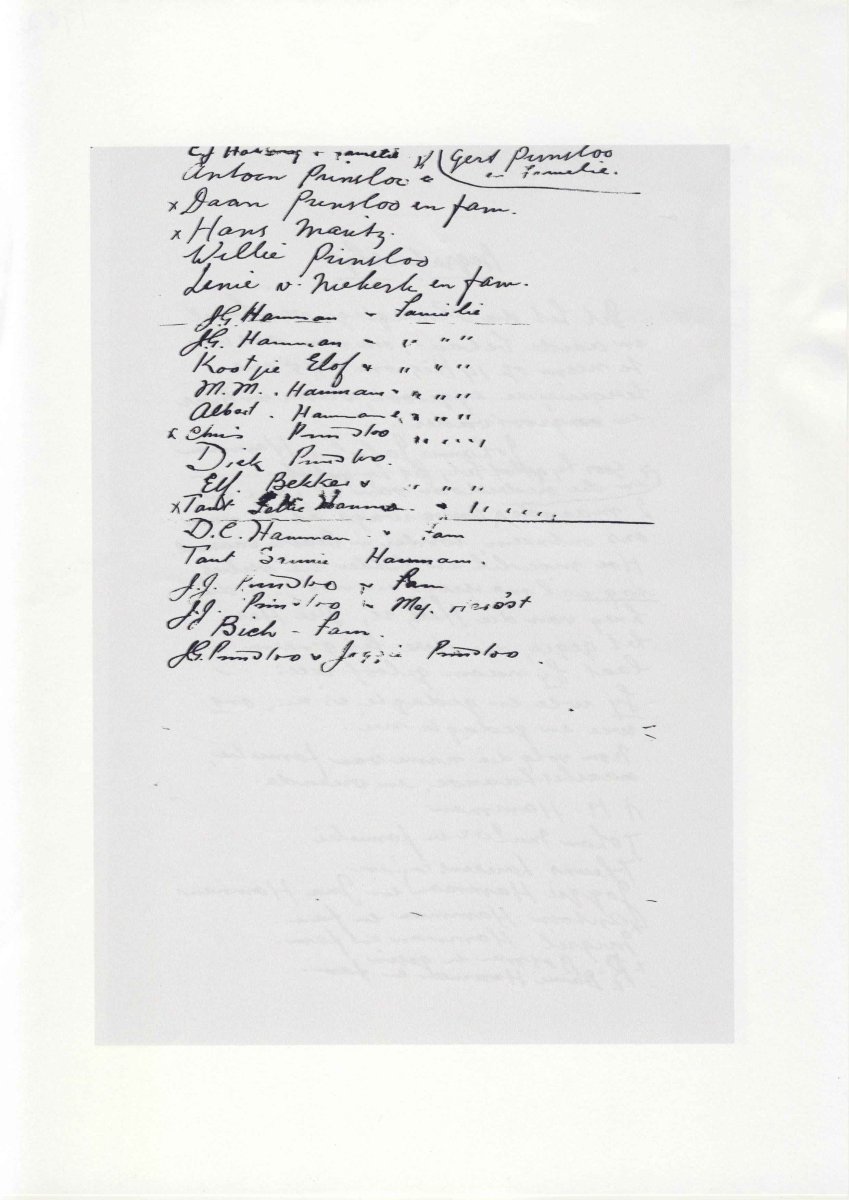 Gert Prinsloo
en Familie.
Antoon Prinsloo &
x Daan Prinsloo en fam.
x Hans Maritz.
Willie Prinsloo
Lenie v. Niekerk en fam.
J.G. Hamman & Familie
J.G. Hamman & " " "
Kootjie Elof & " " "
M.M. Hamman & " " "
Albert. Hamman & " " "
x Chris Prinsloo " " " "
Dick Prinsloo.
Elf. Bekker & " " "
x Tant Hamman & " " " "
D.C. Hamman & Fam
Tant Hamman.
J.J. Prinsloo & Fam
J.J. Prinsloo & Mej.
Fam.
J.G. Prinsloo & Prinsloo.